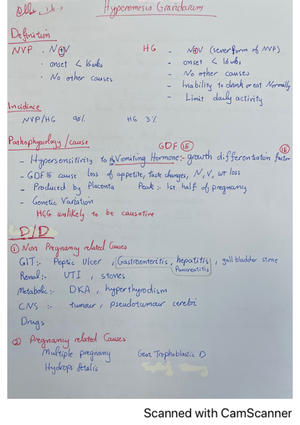 Hyperemesis Gravidarum
Definition
NVP . N V HG - N V (sever form of NVP)
. onset < 16wks - onset < 16wks
. No other causes - No other causes
- Inability to drink or eat Normally
- Limit daily activity
Incidince
NVP/HG 90% HG 3%
Pathophysiology/cause GDF 15
- Hypersensitivity to Vomiting Hormone:- growth differentiation factor 15
- GDF15 cause loss of appetite, taste changes, N, V, wt loss
- Produced by Placenta Peak :- 1st half of pregnancy
- Genetic Variation
HCG unlikely to be causative
D/D
① Non Pregnancy related Causes
GIT:- Peptic Ulcer, Gastroenteritis, hepatitis, gall bladder stone
Pancreatitis
Renal:- UTI, stones
Metabolic:- DKA, hyperthyrodism
CNS :- tumour, pseudotumour cerebri
Drugs
② Pregnancy related Causes
Multiple pregnancy Gen Trophoblastic D
Hydrops fetalis
Scanned with CamScanner